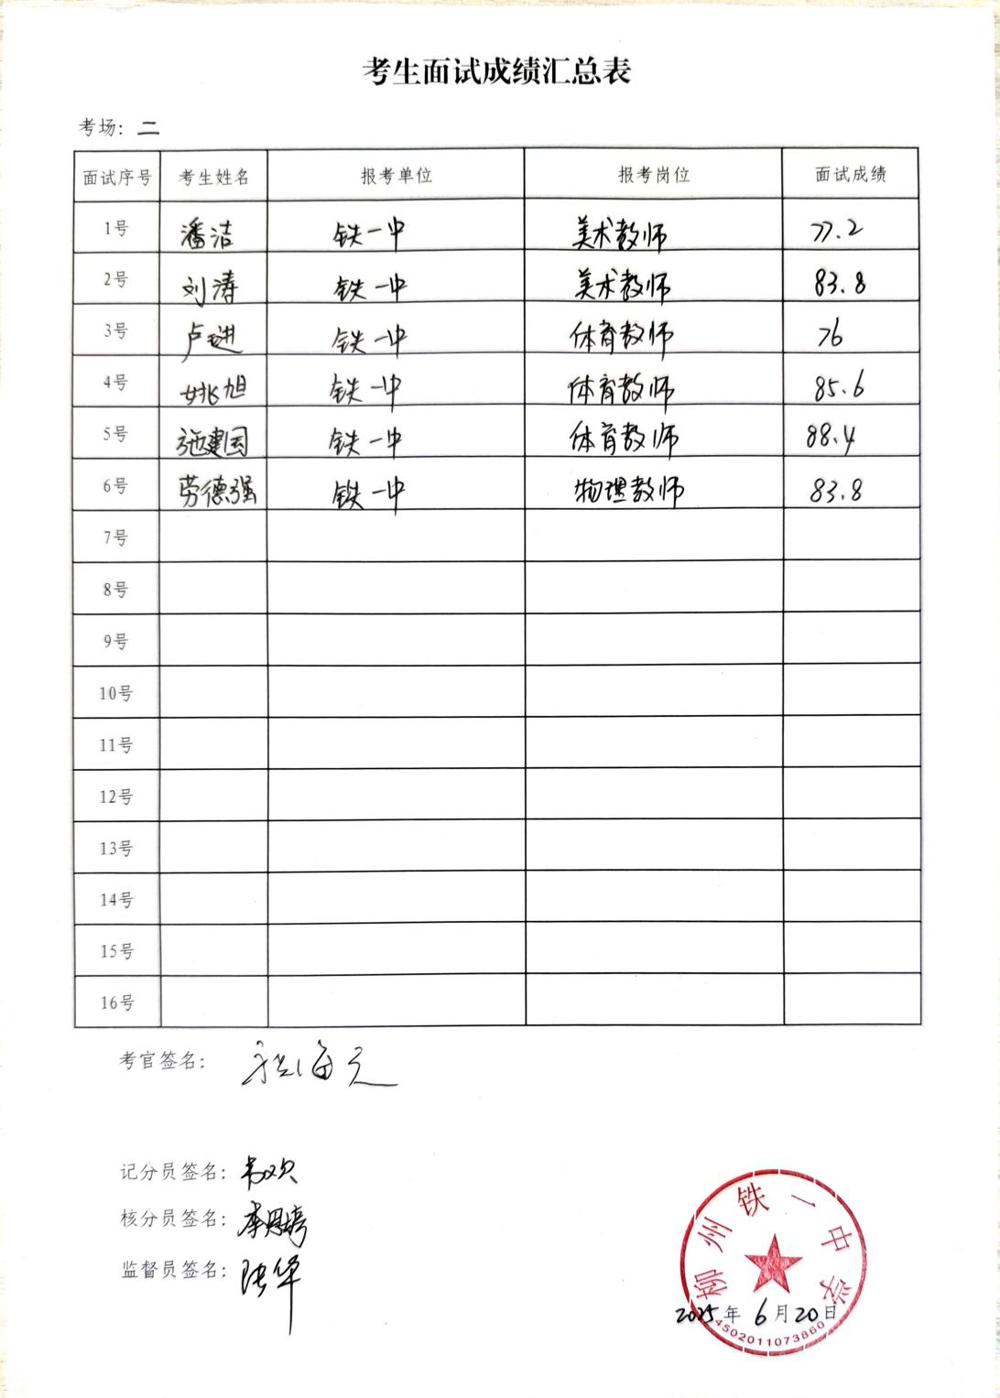 考生面试成绩汇总表
考场：二
面试序号 考生姓名 报考单位 报考岗位 面试成绩
1号 潘洁 铁一中 美术教师 77.2
2号 刘涛 铁一中 美术教师 83.8
3号 卢进 铁一中 体育教师 76
4号 姚旭 铁一中 体育教师 85.6
5号 施建国 铁一中 体育教师 88.4
6号 劳德强 铁一中 物理教师 83.8
7号
8号
9号
10号
11号
12号
13号
14号
15号
16号
考官签名：
记分员签名：韦欢
核分员签名：
监督员签名：张华
柳州铁一中学
2025年6月20日
4502011073860